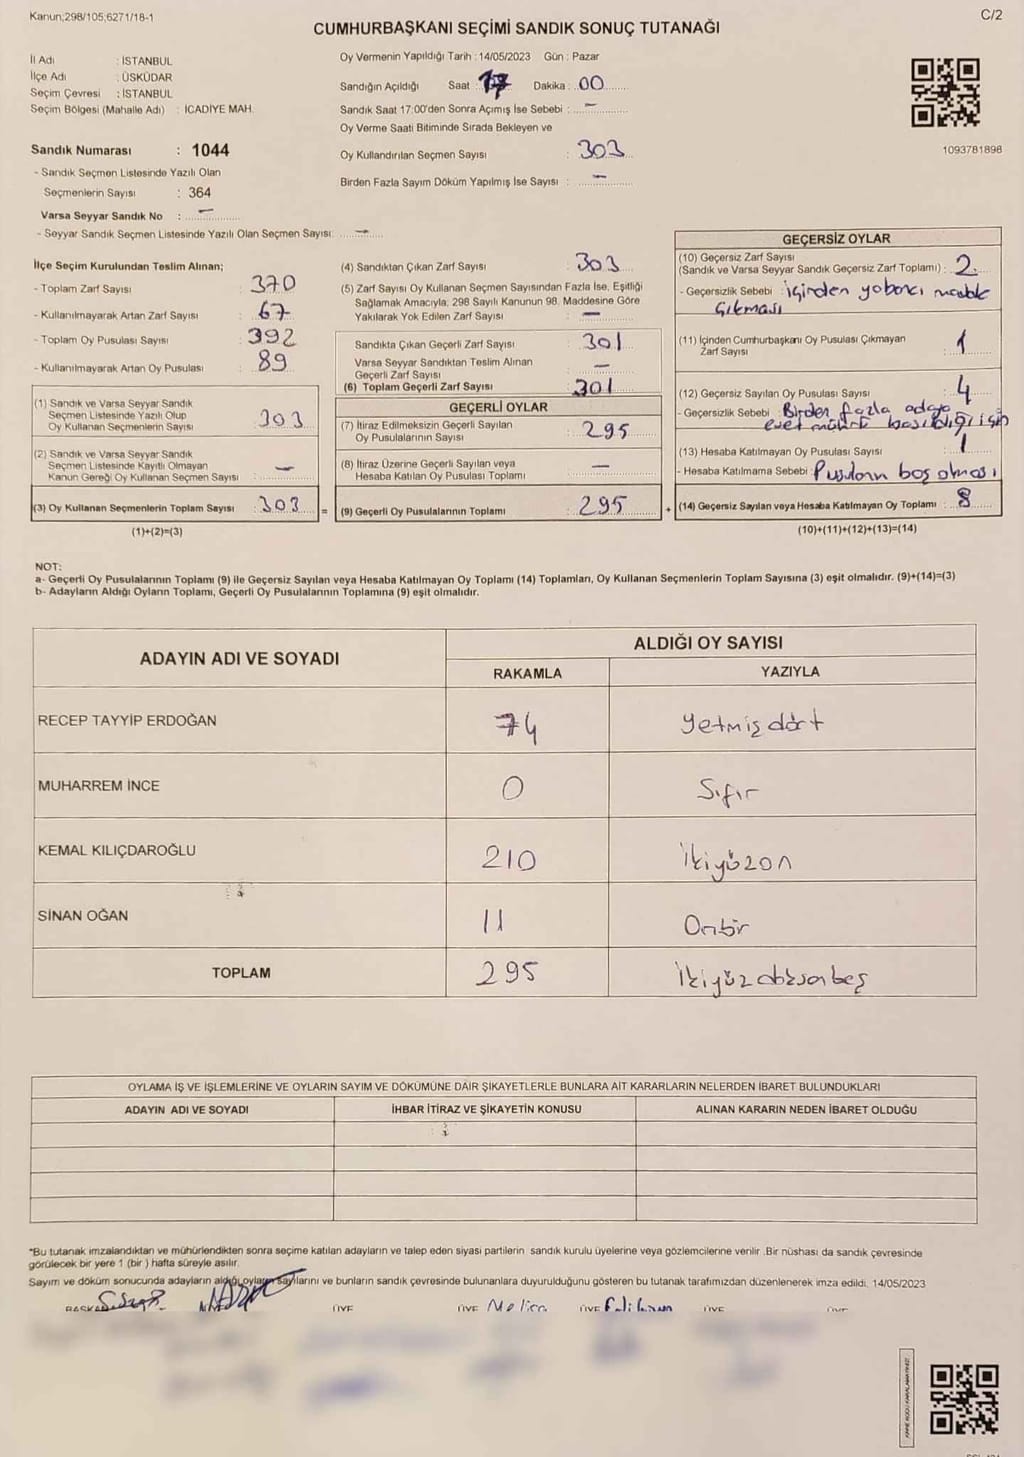 Kanun;298/105;6271/18-1
C/2
CUMHURBAŞKANI SEÇİMİ SANDIK SONUÇ TUTANAĞI
İl Adı : İSTANBUL
İlçe Adı : ÜSKÜDAR
Seçim Çevresi : İSTANBUL
Seçim Bölgesi (Mahalle Adı) : İCADİYE MAH.
Sandık Numarası : 1044
- Sandık Seçmen Listesinde Yazılı Olan
Seçmenlerin Sayısı : 364
Varsa Seyyar Sandık No : —
- Seyyar Sandık Seçmen Listesinde Yazılı Olan Seçmen Sayısı: —
Oy Vermenin Yapıldığı Tarih : 14/05/2023 Gün : Pazar
Sandığın Açıldığı Saat : 17 Dakika : 00
Sandık Saat 17:00'den Sonra Açımış İse Sebebi : —
Oy Verme Saati Bitiminde Sırada Bekleyen ve
Oy Kullandırılan Seçmen Sayısı : 303
Birden Fazla Sayım Döküm Yapılmış İse Sayısı : —
1093781898
İlçe Seçim Kurulundan Teslim Alınan;
- Toplam Zarf Sayısı : 370
- Kullanılmayarak Artan Zarf Sayısı : 67
- Toplam Oy Pusulası Sayısı : 392
- Kullanılmayarak Artan Oy Pusulası : 89
(1) Sandık ve Varsa Seyyar Sandık
Seçmen Listesinde Yazılı Olup
Oy Kullanan Seçmenlerin Sayısı : 303
(2) Sandık ve Varsa Seyyar Sandık
Seçmen Listesinde Kayıtlı Olmayan
Kanun Gereği Oy Kullanan Seçmen Sayısı : —
(3) Oy Kullanan Seçmenlerin Toplam Sayısı : 303 =
(1)+(2)=(3)
(4) Sandıktan Çıkan Zarf Sayısı : 303
(5) Zarf Sayısı Oy Kullanan Seçmen Sayısından Fazla İse, Eşitliği
Sağlamak Amacıyla; 298 Sayılı Kanunun 98. Maddesine Göre
Yakılarak Yok Edilen Zarf Sayısı : —
Sandıkta Çıkan Geçerli Zarf Sayısı : 301
Varsa Seyyar Sandıktan Teslim Alınan
Geçerli Zarf Sayısı : —
(6) Toplam Geçerli Zarf Sayısı : 301
GEÇERLİ OYLAR
(7) İtiraz Edilmeksizin Geçerli Sayılan
Oy Pusulalarının Sayısı : 295
(8) İtiraz Üzerine Geçerli Sayılan veya
Hesaba Katılan Oy Pusulası Toplamı : —
(9) Geçerli Oy Pusulalarının Toplamı : 295 +
GEÇERSİZ OYLAR
(10) Geçersiz Zarf Sayısı
(Sandık ve Varsa Seyyar Sandık Geçersiz Zarf Toplamı) : 2
- Geçersizlik Sebebi : içinden yabancı madde
çıkması
(11) İçinden Cumhurbaşkanı Oy Pusulası Çıkmayan
Zarf Sayısı : 1
(12) Geçersiz Sayılan Oy Pusulası Sayısı : 4
- Geçersizlik Sebebi : Birden fazla adaya
evet mührü basıldığı için
(13) Hesaba Katılmayan Oy Pusulası Sayısı : 1
- Hesaba Katılmama Sebebi : Pusulanın boş olması
(14) Geçersiz Sayılan veya Hesaba Katılmayan Oy Toplamı : 8
(10)+(11)+(12)+(13)=(14)
NOT:
a- Geçerli Oy Pusulalarının Toplamı (9) ile Geçersiz Sayılan veya Hesaba Katılmayan Oy Toplamı (14) Toplamları, Oy Kullanan Seçmenlerin Toplam Sayısına (3) eşit olmalıdır. (9)+(14)=(3)
b- Adayların Aldığı Oyların Toplamı, Geçerli Oy Pusulalarının Toplamına (9) eşit olmalıdır.
ADAYIN ADI VE SOYADI
ALDIĞI OY SAYISI
RAKAMLA YAZIYLA
RECEP TAYYİP ERDOĞAN 74 yetmiş dört
MUHARREM İNCE 0 Sıfır
KEMAL KILIÇDAROĞLU 210 ikiyüzon
SİNAN OĞAN 11 Onbir
TOPLAM 295 ikiyüz doksanbeş
OYLAMA İŞ VE İŞLEMLERİNE VE OYLARIN SAYIM VE DÖKÜMÜNE DAİR ŞİKAYETLERLE BUNLARA AİT KARARLARIN NELERDEN İBARET BULUNDUKLARI
ADAYIN ADI VE SOYADI İHBAR İTİRAZ VE ŞİKAYETİN KONUSU ALINAN KARARIN NEDEN İBARET OLDUĞU
*Bu tutanak imzalandıktan ve mühürlendikten sonra seçime katılan adayların ve talep eden siyasi partilerin sandık kurulu üyelerine veya gözlemcilerine verilir .Bir nüshası da sandık çevresinde
görülecek bir yere 1 (bir ) hafta süreyle asılır.
Sayım ve döküm sonucunda adayların aldığı oyların sayılarını ve bunların sandık çevresinde bulunanlara duyurulduğunu gösteren bu tutanak tarafımızdan düzenlenerek imza edildi. 14/05/2023
BAŞKAN ÜYE ÜYE ÜYE ÜYE ÜYE